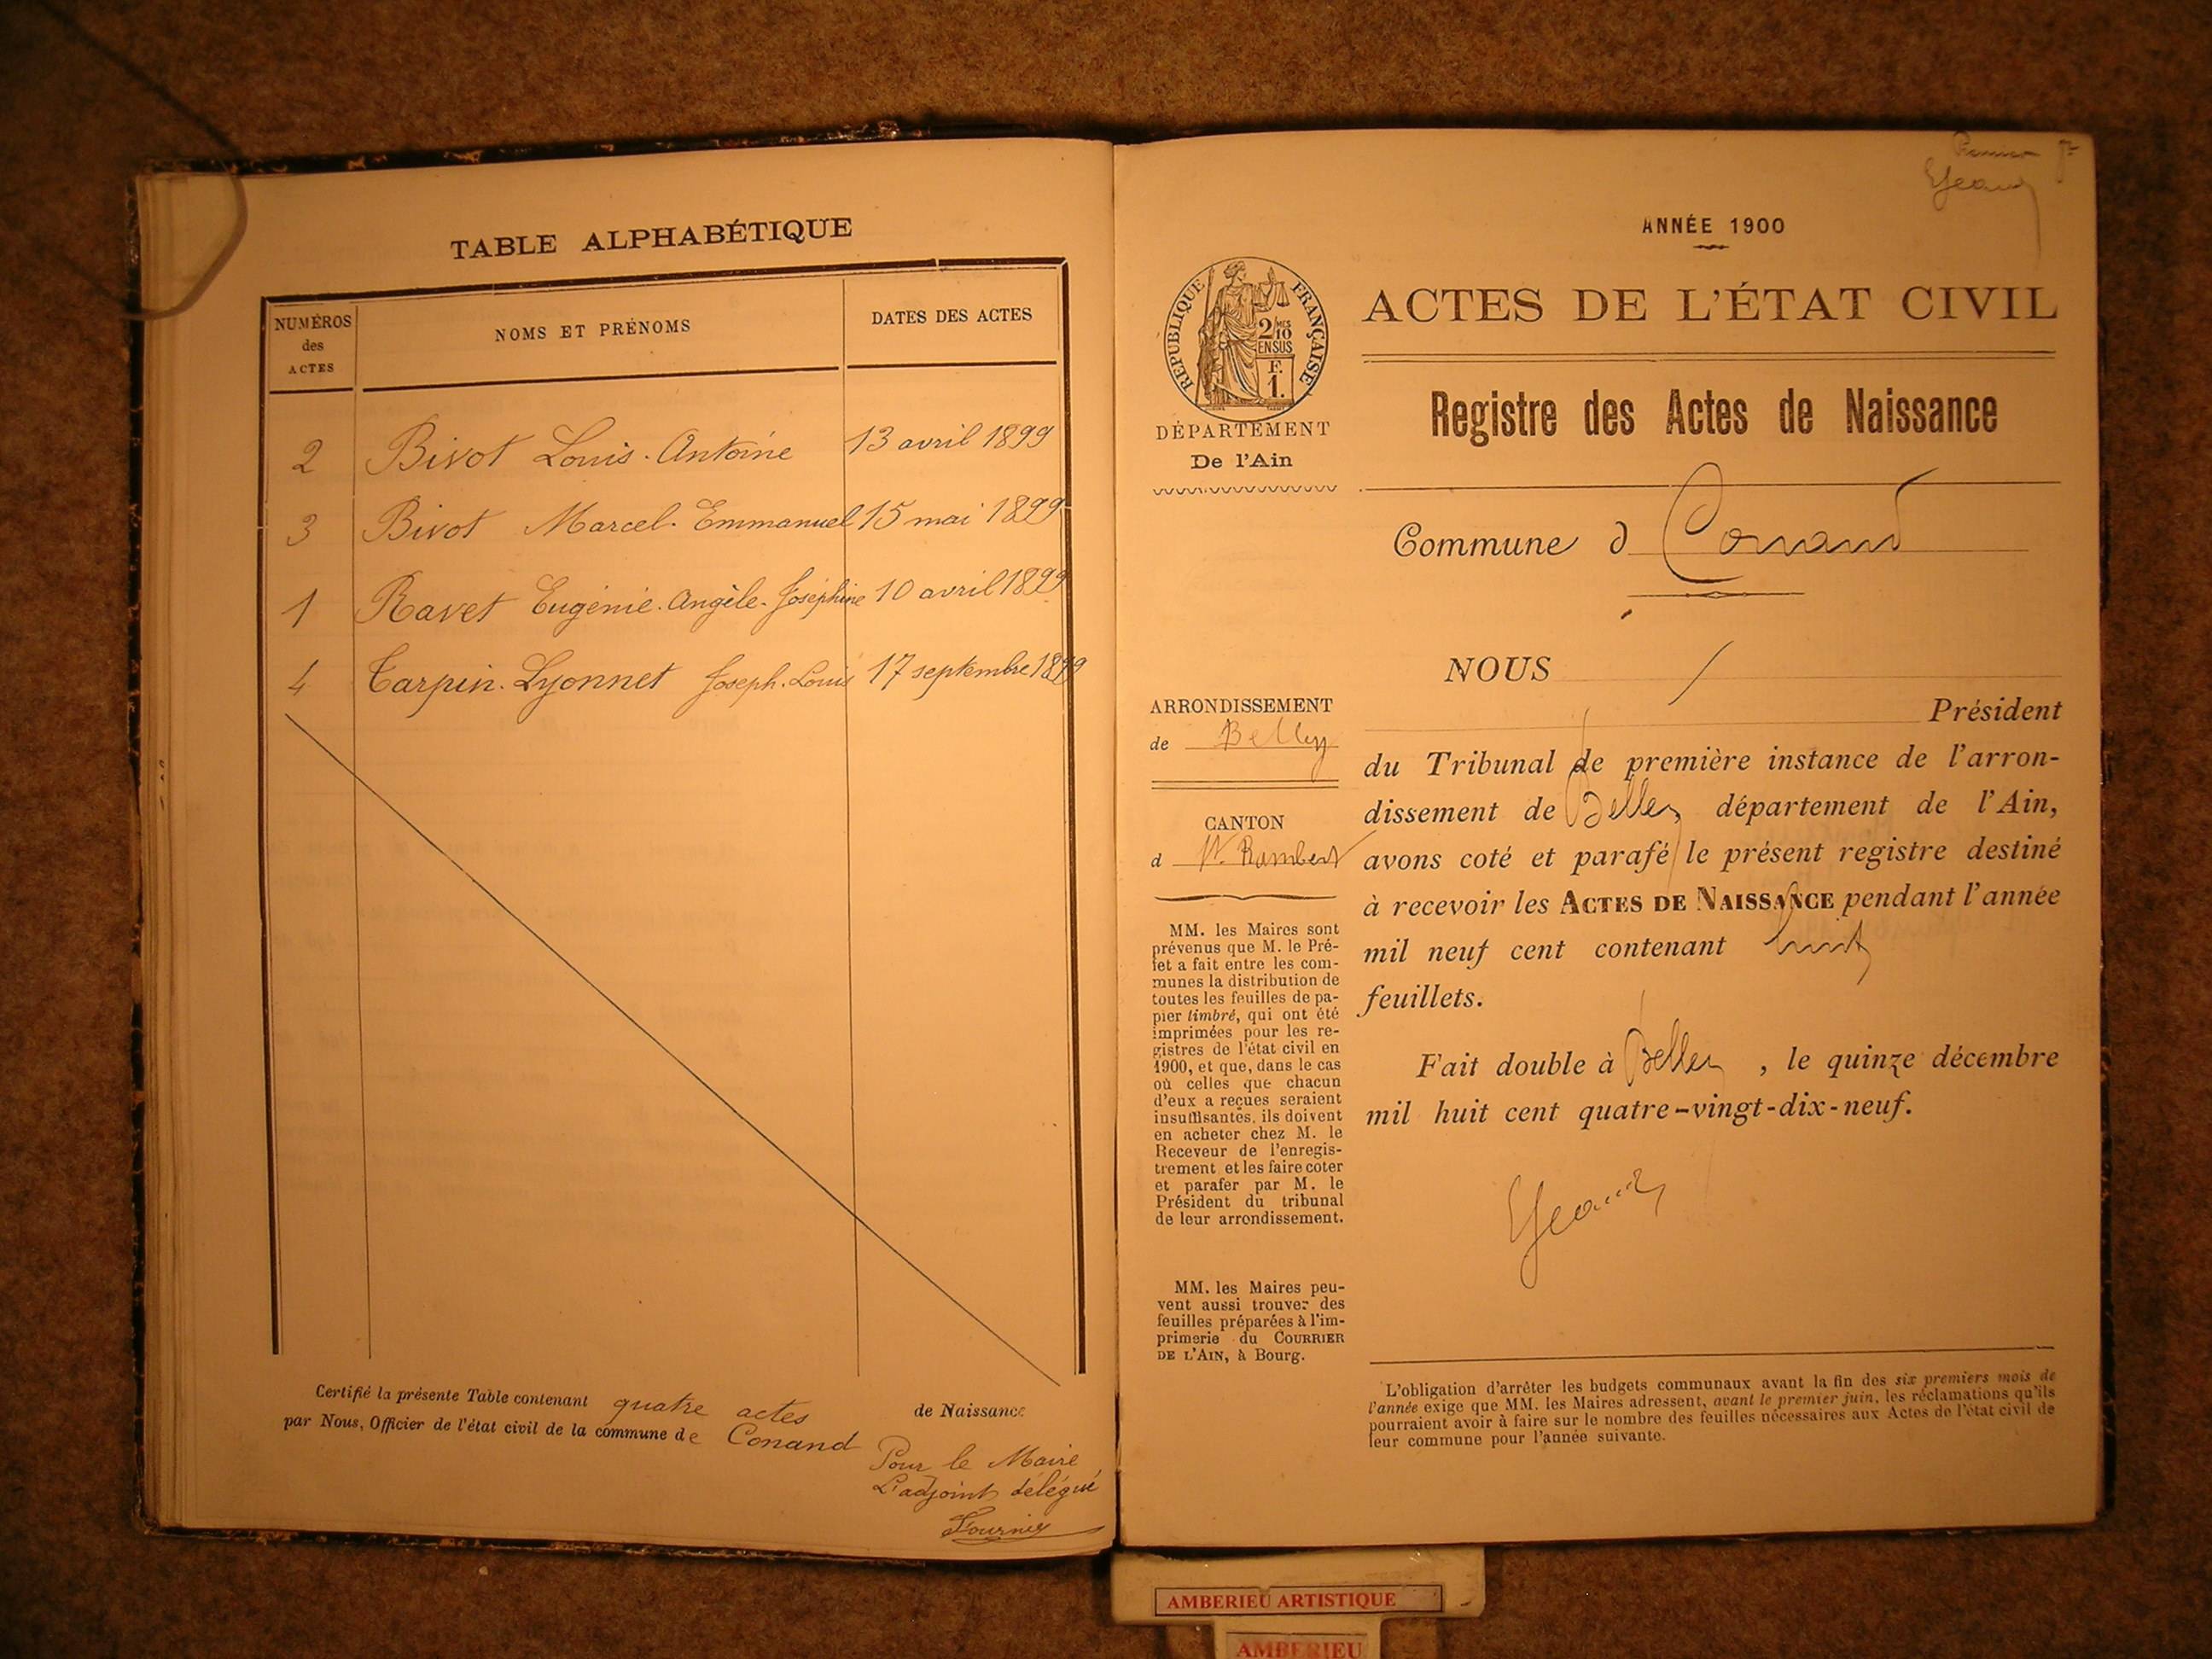 TABLE ALPHABÉTIQUE
NUMÉROS des ACTES
NOMS ET PRÉNOMS
DATES DES ACTES
2 Bivot Louis-Antoine 13 avril 1899
3 Bivot Marcel-Emmanuel 15 mai 1899
1 Ravet Eugénie-Angèle-Joséphine 10 avril 1899
4 Tarpin-Lyonnet Joseph-Louis 17 septembre 1899
Certifié la présente Table contenant quatre actes de Naissance
par Nous, Officier de l'état civil de la commune de Conand
Pour le Maire
L'adjoint délégué
Fournier
Premier
ANNÉE 1900
RÉPUBLIQUE FRANÇAISE
2/10 MES
EN SUS
F.
1.
ACTES DE L'ÉTAT CIVIL
DÉPARTEMENT
De l'Ain
Registre des Actes de Naissance
Commune d Conand
NOUS
Président
du Tribunal de première instance de l'arron-
dissement de Belley département de l'Ain,
avons coté et parafé le présent registre destiné
à recevoir les ACTES DE NAISSANCE pendant l'année
mil neuf cent contenant huit
feuillets.
Fait double à Belley, le quinze décembre
mil huit cent quatre-vingt-dix-neuf.
ARRONDISSEMENT
de Belley
CANTON
d St Rambert
MM. les Maires sont
prévenus que M. le Pré-
fet a fait entre les com-
munes la distribution de
toutes les feuilles de pa-
pier timbré, qui ont été
imprimées pour les re-
gistres de l'état civil en
1900, et que, dans le cas
où celles que chacun
d'eux a reçues seraient
insuffisantes, ils doivent
en acheter chez M. le
Receveur de l'enregis-
trement et les faire coter
et parafer par M. le
Président du tribunal
de leur arrondissement.
MM. les Maires peu-
vent aussi trouver des
feuilles préparées à l'im-
primerie du COURRIER
DE L'AIN, à Bourg.
L'obligation d'arrêter les budgets communaux avant la fin des six premiers mois de
l'année exige que MM. les Maires adressent, avant le premier juin, les réclamations qu'ils
pourraient avoir à faire sur le nombre des feuilles nécessaires aux Actes de l'état civil de
leur commune pour l'année suivante.
AMBERIEU ARTISTIQUE
AMBERIEU